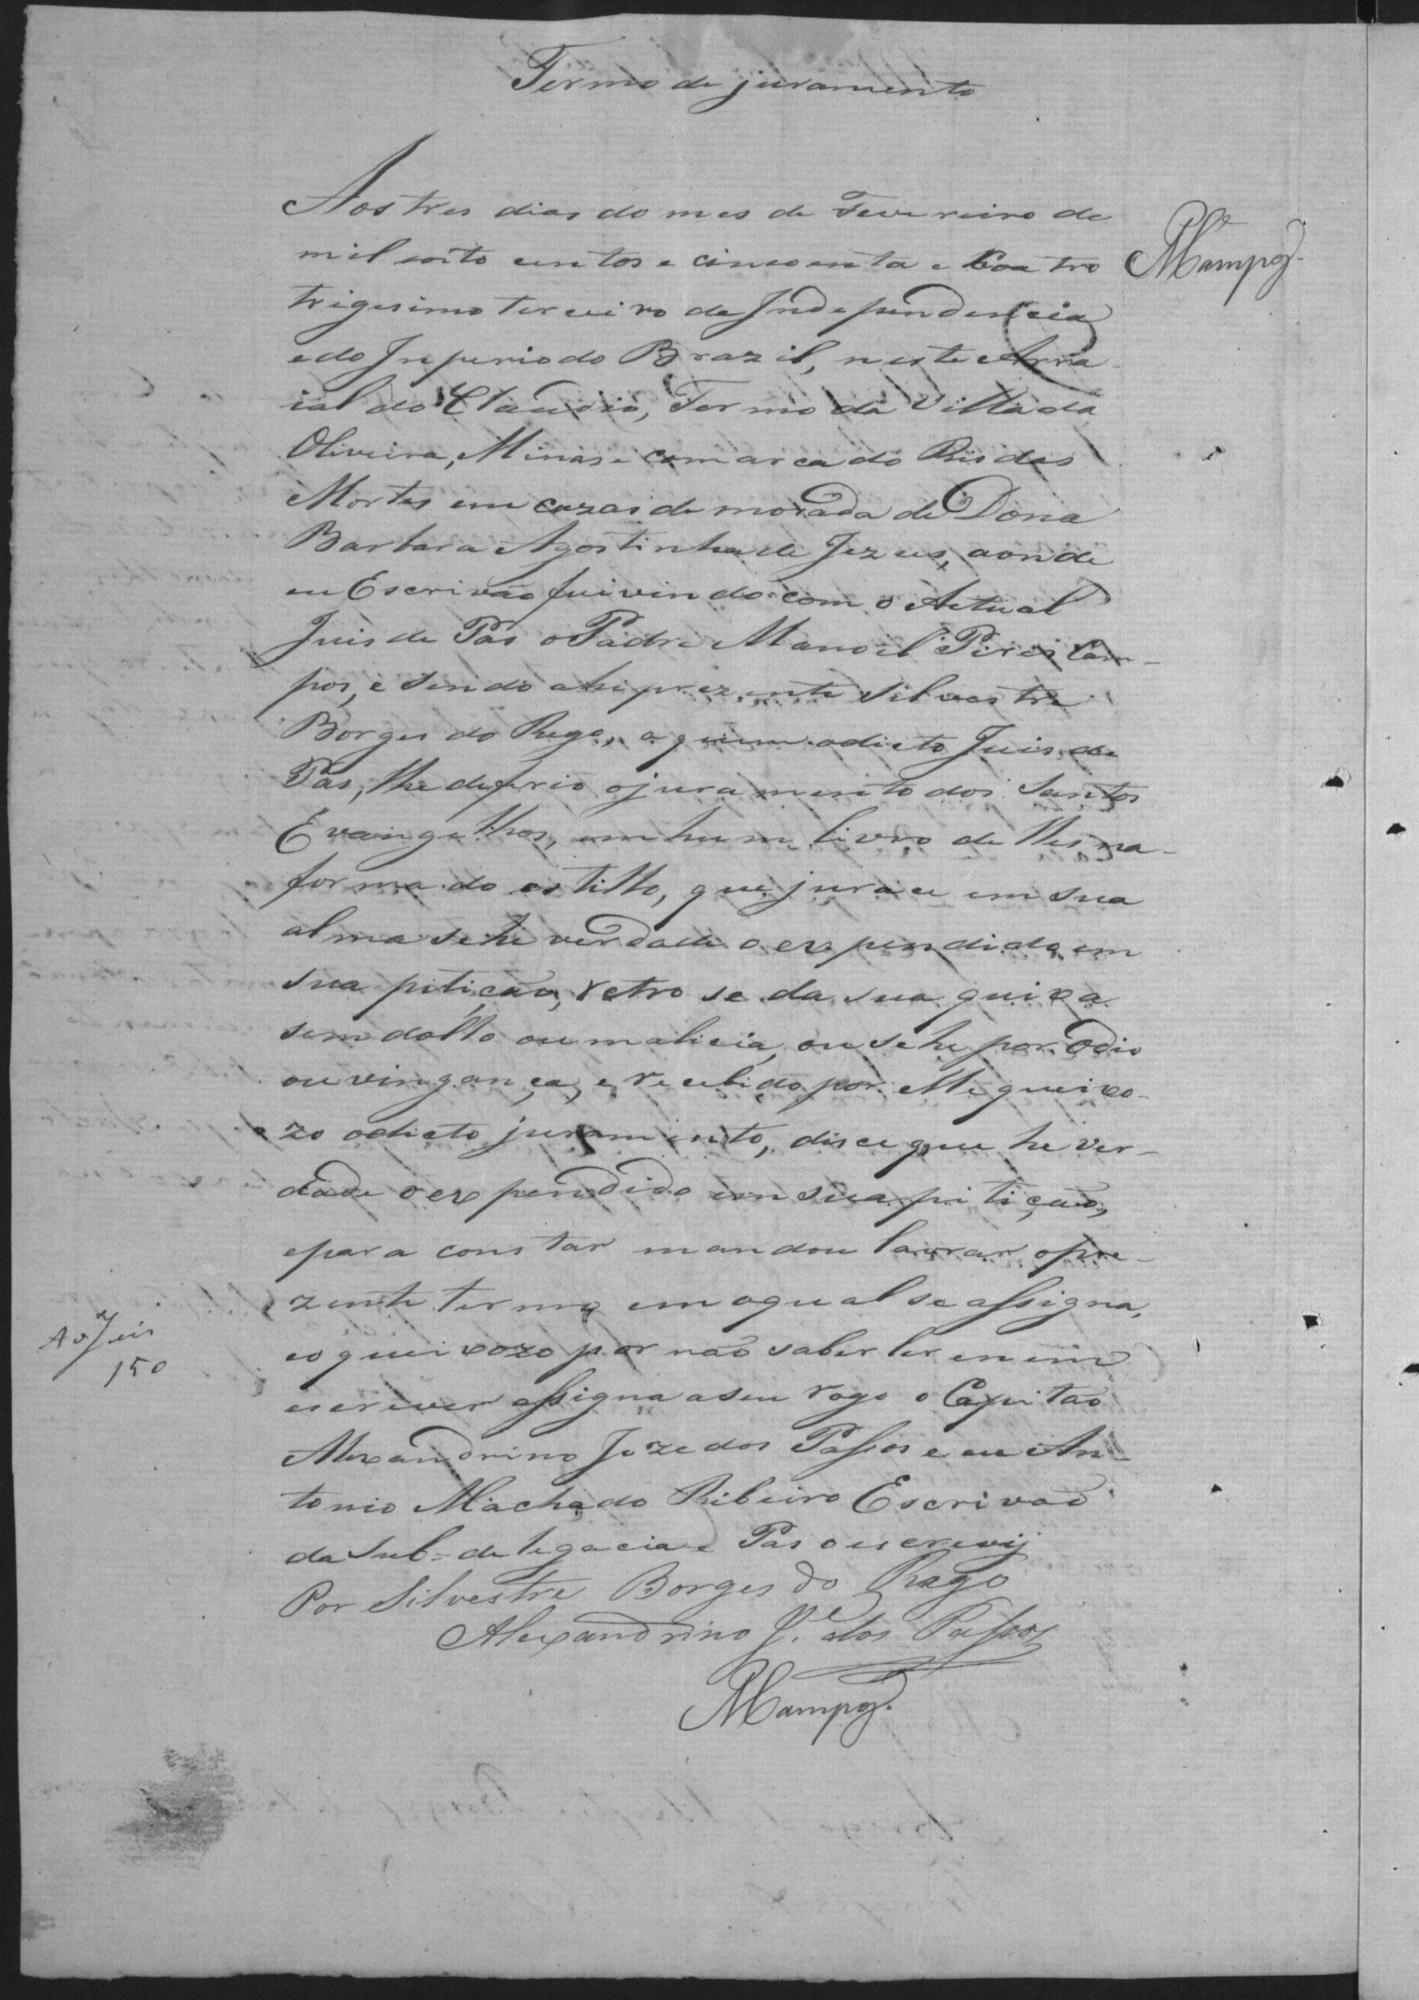 Termo de juramento
Aos tres dias do mes de Fevereiro de
mil oito centos e cincoenta e Coatro
trigesimo terceiro da Independencia
e do Imperio do Brazil, neste Arra
ial do Claudio, Termo da Villa da
Oliveira, Minas e comarca do Rio das
Mortes em cazas de morada de Dona
Barbara Agostinha de Jezus, aonde
eu Escrivão fui vindo com o Actual
Juis de Pas o Padre Manoel Pires Cam-
pos, e sendo ahi prezente Silvestre
Borges do Rego, a quem o dicto Juis de
Pas, lhe deferio o juramento dos Santos
Evangelhos, em hum livro delles na
forma do estillo, que jurace em sua
alma se he verdade o expendido em
sua pitição, retro se da sua queixa
sem dollo ou malicia, ou se he por odio
ou vingança, e recebido por elle queixo-
zo o dicto juramento, disce que he ver-
dade o expendido em sua pitição,
e para constar mandou lavrar o pre-
zente termo em o qual se assigna,
e o queixozo por não saber ler e nem
escrever assigna a seu rogo o Capitão
Alexandrino Joze dos Passos e eu An-
tonio Machado Ribeiro Escrivão
da Sub=delegacia e Pas o escrevij
Por Silvestre Borges do Rago
Alexandrino J.e dos Passos
MCampos.
MCampos.
Ao Juis
150